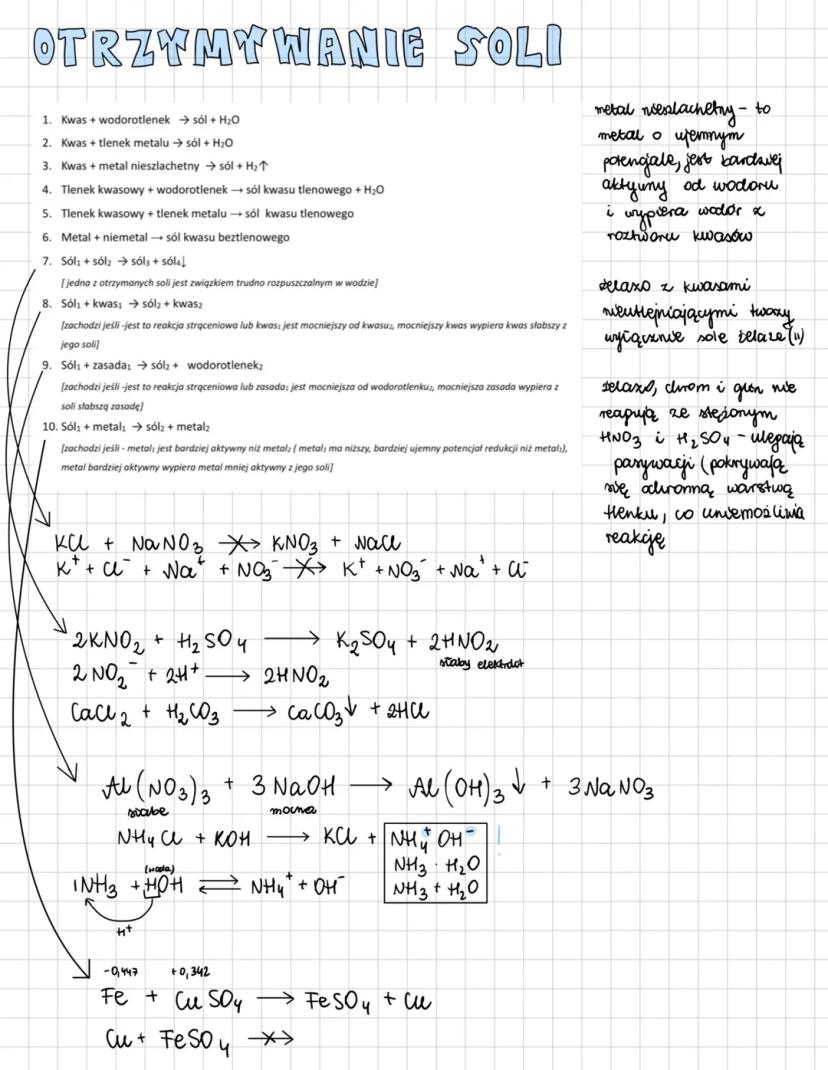 OTRZYMYWANIE SOLI
1. Kwas + wodorotlenek → sól + H₂O
2. Kwas + tlenek metalu → sól + H₂O
3. Kwas + metal nieszlachetny → sól + H₂↑
4. Tlenek kwasowy + wodorotlenek → sól kwasu tlenowego + H₂O
5. Tlenek kwasowy + tlenek metalu → sól kwasu tlenowego
6. Metal + niemetal → sól kwasu beztlenowego
7. Sól₁ + sól₂ → sól₃ + sól₄↓
[ jedna z otrzymanych soli jest związkiem trudno rozpuszczalnym w wodzie]
8. Sól₁ + kwas₁ → sól₂ + kwas₂
[zachodzi jeśli -jest to reakcja strąceniowa lub kwas₁ jest mocniejszy od kwasu₂, mocniejszy kwas wypiera kwas słabszy z
jego soli]
9. Sól₁ + zasada₁ → sól₂ + wodorotlenek₂
[zachodzi jeśli -jest to reakcja strąceniowa lub zasada₁ jest mocniejsza od wodorotlenku₂, mocniejsza zasada wypiera z
soli słabszą zasadę]
10. Sól₁ + metal₁ → sól₂ + metal₂
[zachodzi jeśli - metal₁ jest bardziej aktywny niż metal₂ ( metal₁ ma niższy, bardziej ujemny potencjał redukcji niż metal₂),
metal bardziej aktywny wypiera metal mniej aktywny z jego soli]
metal nieszlachetny - to
metal o ujemnym
potencjale, jest bardziej
aktywny od wodoru
i wypiera wodór z
roztworu kwasów
żelazo z kwasami
nieutleniającymi tworzy
wyłącznie sole żelaza (II)
żelazo, chrom i glin nie
reagują ze stężonym
HNO₃ i H₂SO₄ - ulegają
pasywacji (pokrywają
się ochronną warstwą
tlenku, co uniemożliwia
reakcję
KCl + NaNO₃ ↛ KNO₃ + NaCl
K⁺ + Cl⁻ + Na⁺ + NO₃⁻ ↛ K⁺ + NO₃⁻ + Na⁺ + Cl⁻
2KNO₂ + H₂SO₄ → K₂SO₄ + 2HNO₂
słaby elektrolit
2NO₂⁻ + 2H⁺ → 2HNO₂
CaCl₂ + H₂CO₃ → CaCO₃↓ + 2HCl
Al(NO₃)₃ + 3NaOH → Al(OH)₃↓ + 3NaNO₃
słabe mocna
NH₄Cl + KOH → KCl + NH₄⁺OH⁻ !
NH₃ · H₂O
NH₃ + H₂O
(woda)
NH₃ + HOH ⇌ NH₄⁺ + OH⁻
H⁺
-0,447 +0,342
Fe + CuSO₄ → FeSO₄ + Cu
Cu + FeSO₄ ↛